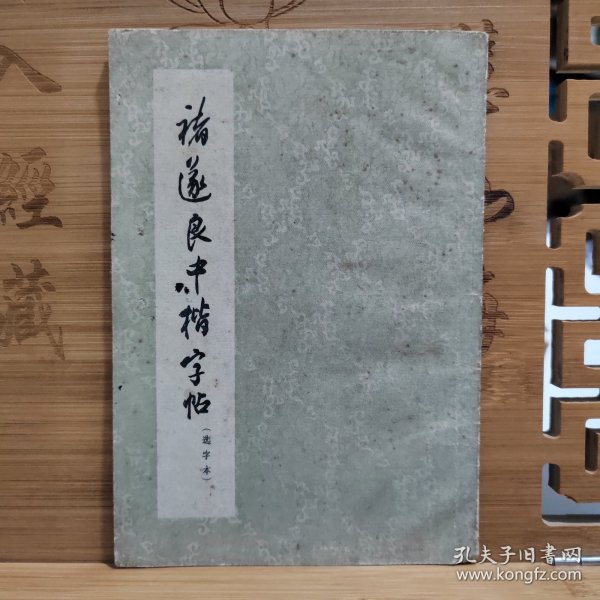 褚遂良中楷字帖
(选字本)
入
經
藏
孔夫子旧书网
www.kongfz.com